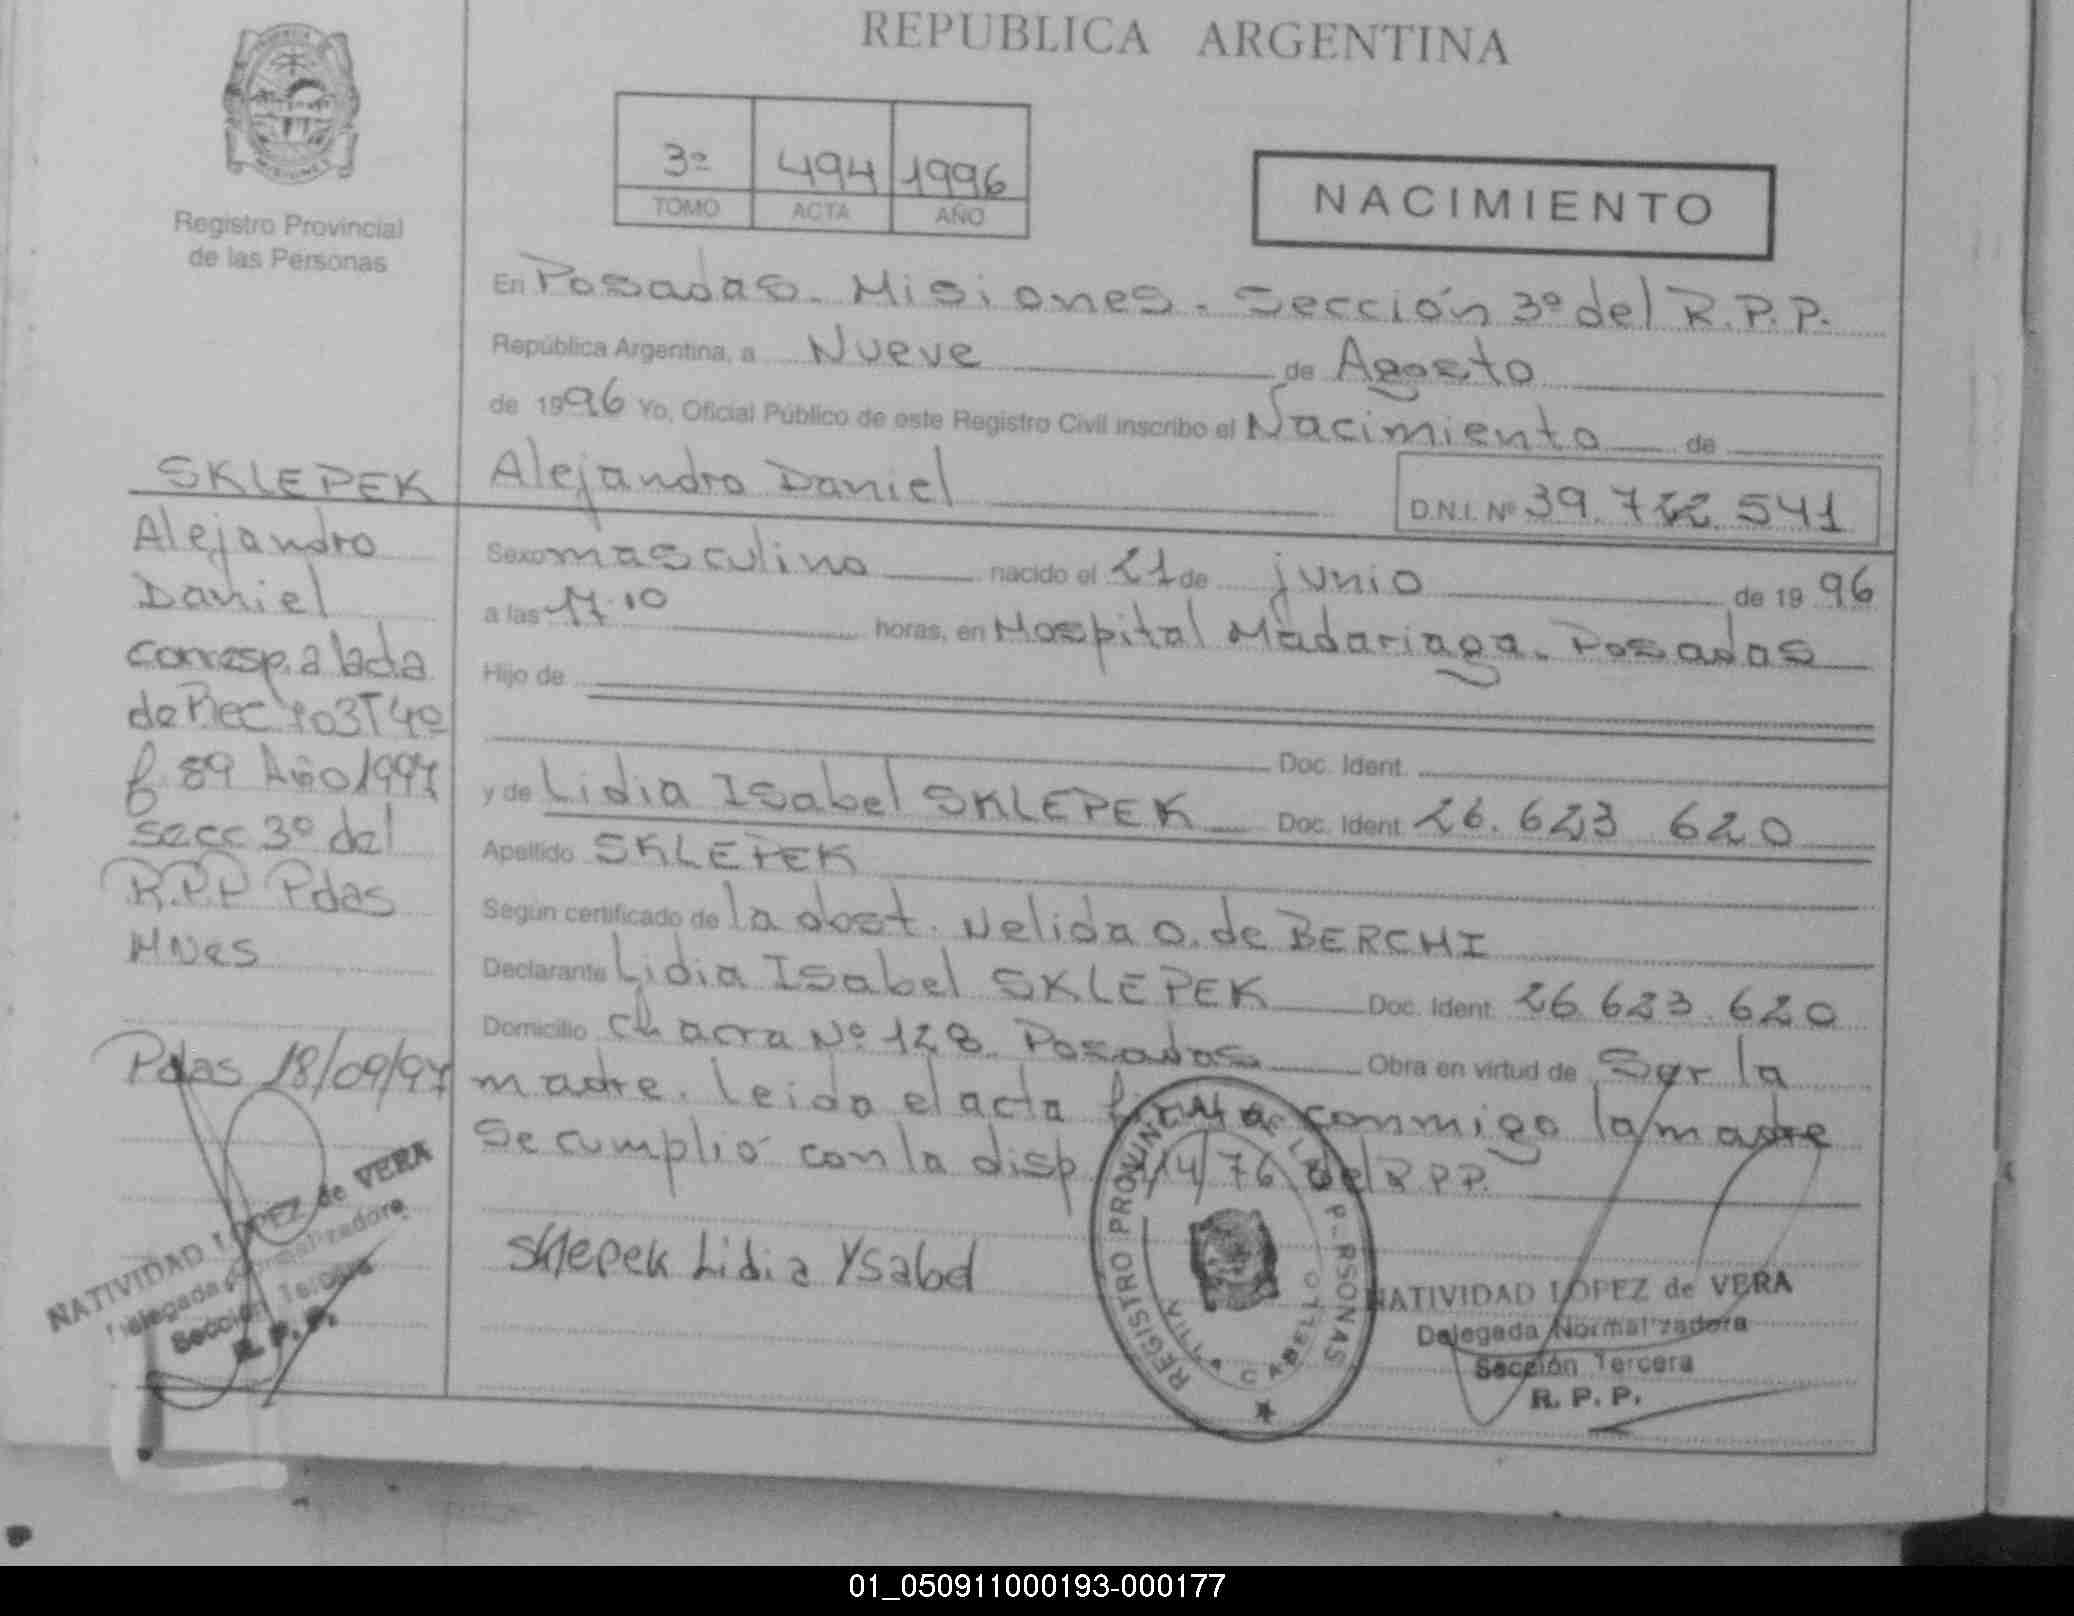 REPUBLICA ARGENTINA
3º 494 1996
TOMO ACTA AÑO
NACIMIENTO
Registro Provincial
de las Personas
En Posadas - Misiones - Sección 3º del R.P.P.
República Argentina, a Nueve de Agosto
de 1996 Yo, Oficial Público de este Registro Civil inscribo el Nacimiento de
Alejandro Daniel
D.N.I. Nº 39.722.541
Sexo masculino nacido el 21 de junio de 1996
a las 17.10 horas, en Hospital Madariaga - Posadas
Hijo de
Doc. Ident.
y de Lidia Isabel SKLEPEK Doc. Ident. 26.623 620
Apellido SKLEPEK
Según certificado de la obst. Nelida O. de BERCHI
Declarante Lidia Isabel SKLEPEK Doc. Ident. 26 623.620
Domicilio chacra Nº 128 Posadas Obra en virtud de Ser la
madre. Leida el acta firma conmmigo la madre
Se cumplió con la disp. 114/76 del R.P.P.
Sklepek Lidia Ysabel
SKLEPEK
Alejandro
Daniel
corresp. a lacta
de Rec 103 T 4º
f 89 Año 1997
secc 3º del
R.P.P Pdas
Mnes
Pdas 18/09/97
NATIVIDAD LOPEZ de VERA
Delegada Normalizadora
Sección Tercera
R. P. P.
REGISTRO PROVINCIAL DE LAS PERSONAS
VILLA CABELLO
NATIVIDAD LOPEZ de VERA
Delegada Normalizadora
Sección Tercera
R. P. P.
01_050911000193-000177